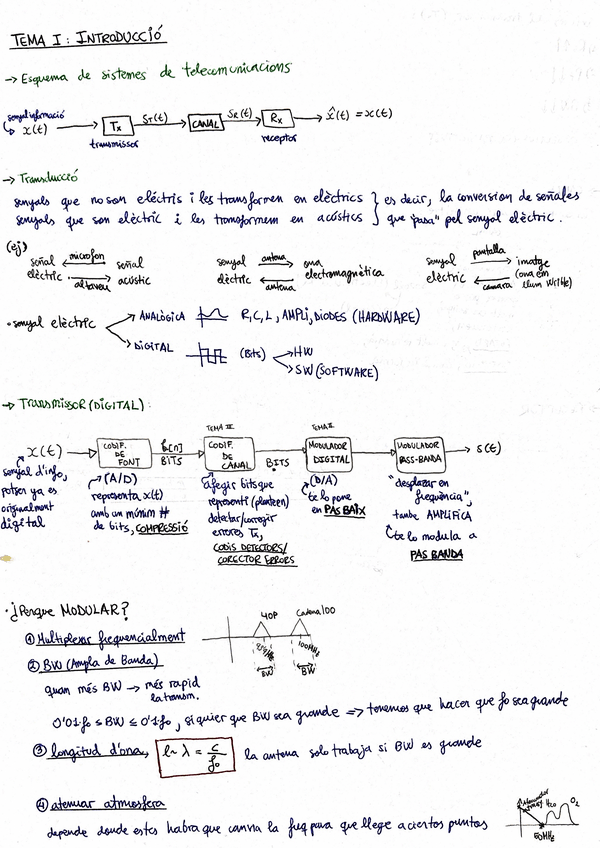 TEMA I: INTRODUCCIÓ
→ Esquema de sistemes de telecomunicacions
senyal informació
x(t) → Tx → ST(t) → CANAL → SR(t) → Rx → x̂(t) = x(t)
transmissor receptor
→ Transducció
senyals que no son elèctris i les transformen en elèctrics } es decir, la conversion de señales
senyals que son elèctric i les transformem en acústics } que "pasa" pel senyal elèctric.
(ej)
señal elèctric microfon altaveu señal acústic
senyal elèctric antena antena ona electromagnètica
senyal elèctric pantalla càmara imatge (ona em llum
· senyal elèctric
ANALÒGICA R, C, L, AMPLI, DIODES (HARDWARE)
DIGITAL (Bits) → HW
→ SW (SOFTWARE)
→ Transmissor (DIGITAL):
TEMA III TEMA II
x(t) → CODIF. DE FONT → b[n] BITS → CODIF. DE CANAL → BITS → MODULADOR DIGITAL → MODULADOR PASS-BANDA → s(t)
senyal d'info, potser ya es originalment digital
(A/D) representa x(t) amb un mínim # de bits, COMPRESSIÓ
afegir bits que representi (planteen) detectar/corregir errores Tx, CODIS DETECTORS/CORECTOR ERRORS
(D/A) te lo pone en PAS BAIX
"desplazar en freqüència", tambe AMPLIFICA
te lo modula a PAS BANDA
· ¿Perque MODULAR?
① Multiplexar frequencialment
40P Cadena 100
100MHz
BW BW
② BW (Ampla de Banda)
quan més BW → més rapid la transm.
0'01 fo ≤ BW ≤ 0'1 fo, si quier que BW sea grande ⇒ tenemos que hacer que fo sea grande
③ longitud d'ona, l ~ λ = c/fo la antena solo trabaja si BW es grande
④ atenuar atmosfera
depende donde estes habra que canvia la freq para que llege a ciertos puntos
H2O O2
50MHz